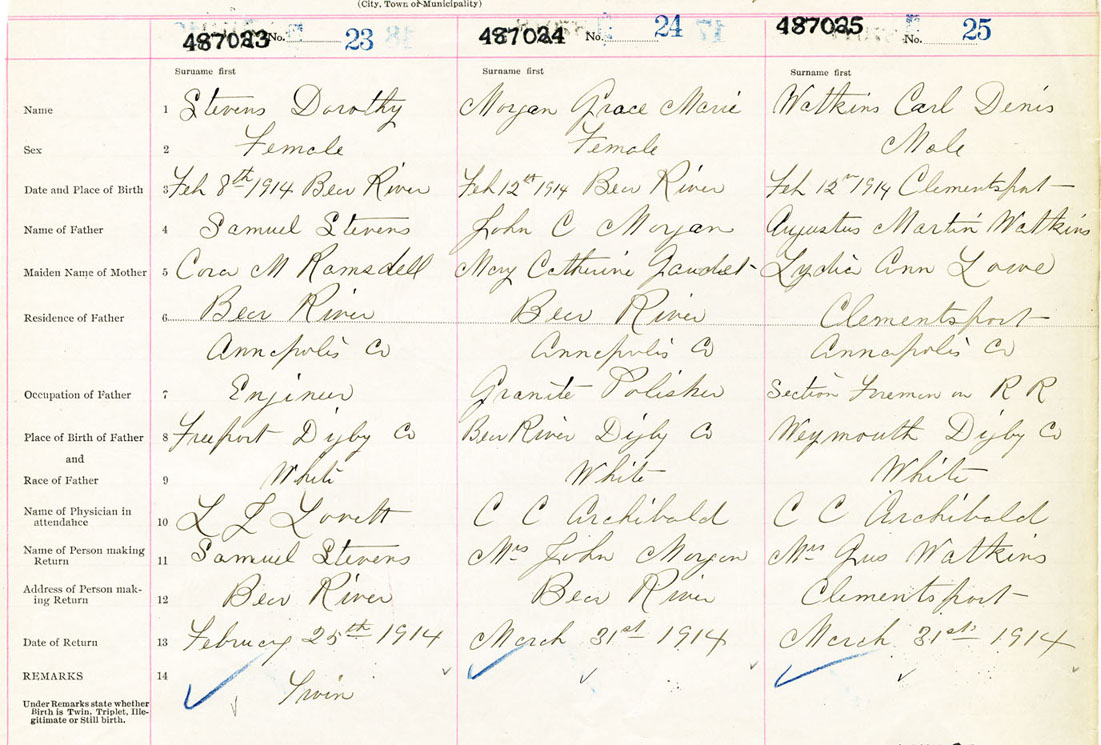 (City, Town or Municipality)
487023 No. 23 487024 No. 24 487025 No. 25
Surname first Surname first Surname first
Name 1 Stevens Dorothy Morgan Grace Marie Watkins Carl Denis
Sex 2 Female Female Male
Date and Place of Birth 3 Feb 8th 1914 Bear River Feb 12th 1914 Bear River Feb 12th 1914 Clementsport
Name of Father 4 Samuel Stevens John C Morgan Augustus Martin Watkins
Maiden Name of Mother 5 Cora M Ramsdell Mary Catherine Gaudet Lydia Ann Lowe
Residence of Father 6 Bear River Bear River Clementsport
Annapolis Co Annapolis Co Annapolis Co
Occupation of Father 7 Enjineer Granite Polisher Section Foreman on R R
Place of Birth of Father 8 Freeport Digby Co Bear River Digby Co Weymouth Digby Co
and
Race of Father 9 White White White
Name of Physician in
attendance 10 L L Lovett C C Archibald C C Archibald
Name of Person making
Return 11 Samuel Stevens Mrs John Morgan Mrs Gus Watkins
Address of Person mak-
ing Return 12 Bear River Bear River Clementsport
Date of Return 13 February 25th 1914 March 31st 1914 March 31st 1914
REMARKS 14 Twin
Under Remarks state whether
Birth is Twin, Triplet, Ille-
gitimate or Still birth.